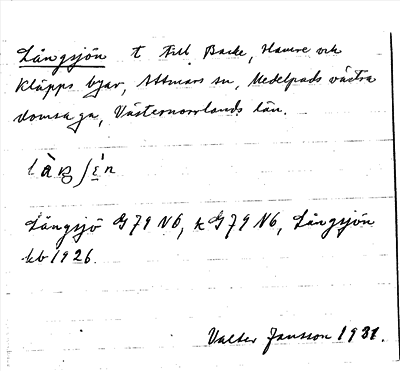 Långsjön t till Backe, Hamre och
Kläpps byar, Attmars sn, Medelpads västra
domsaga, Västernorrlands län.
Långsjö G 79 N6, k G 79 N6, Långsjön
kb 1926.
Valter Jansson 1931.